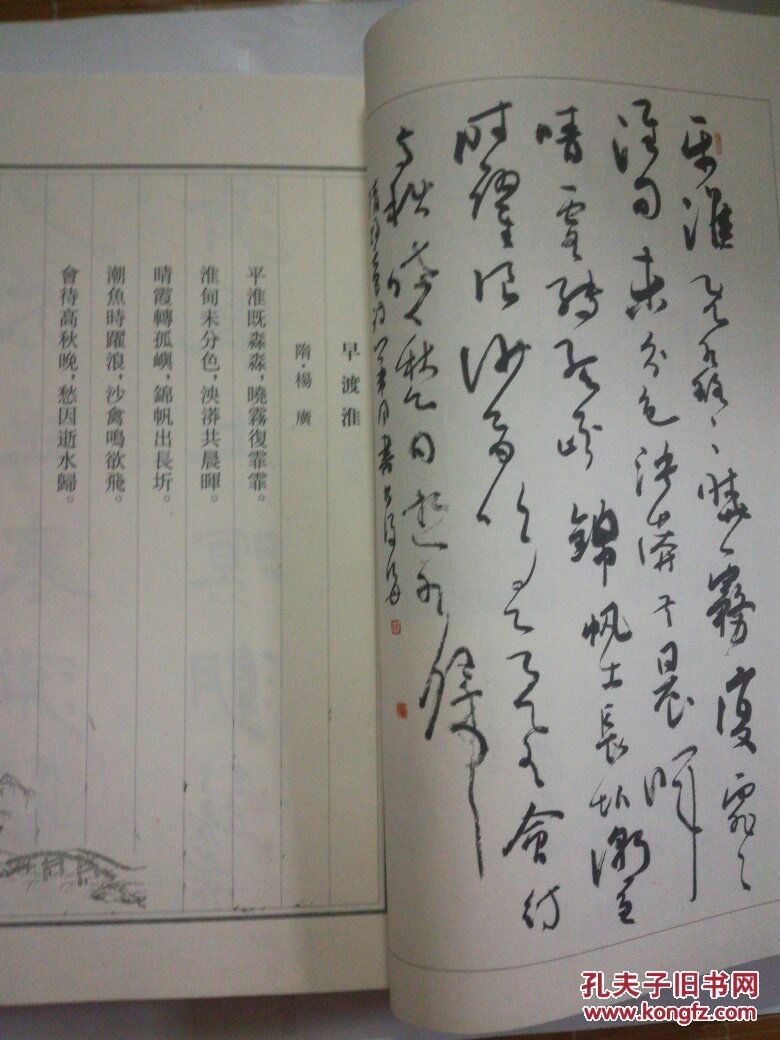 平淮既淼淼曉霧復霏霏
淮甸未分色泱漭共晨暉
晴霞轉孤嶼錦帆出長圻潮魚
時躍浪沙禽鳴欲飛會待
高秋晚愁因逝水歸
早渡淮
隋·楊廣
平淮既淼淼，曉霧復霏霏。
淮甸未分色，泱漭共晨暉。
晴霞轉孤嶼，錦帆出長圻。
潮魚時躍浪，沙禽鳴欲飛。
會待高秋晚，愁因逝水歸。
孔夫子旧书网
www.kongfz.com